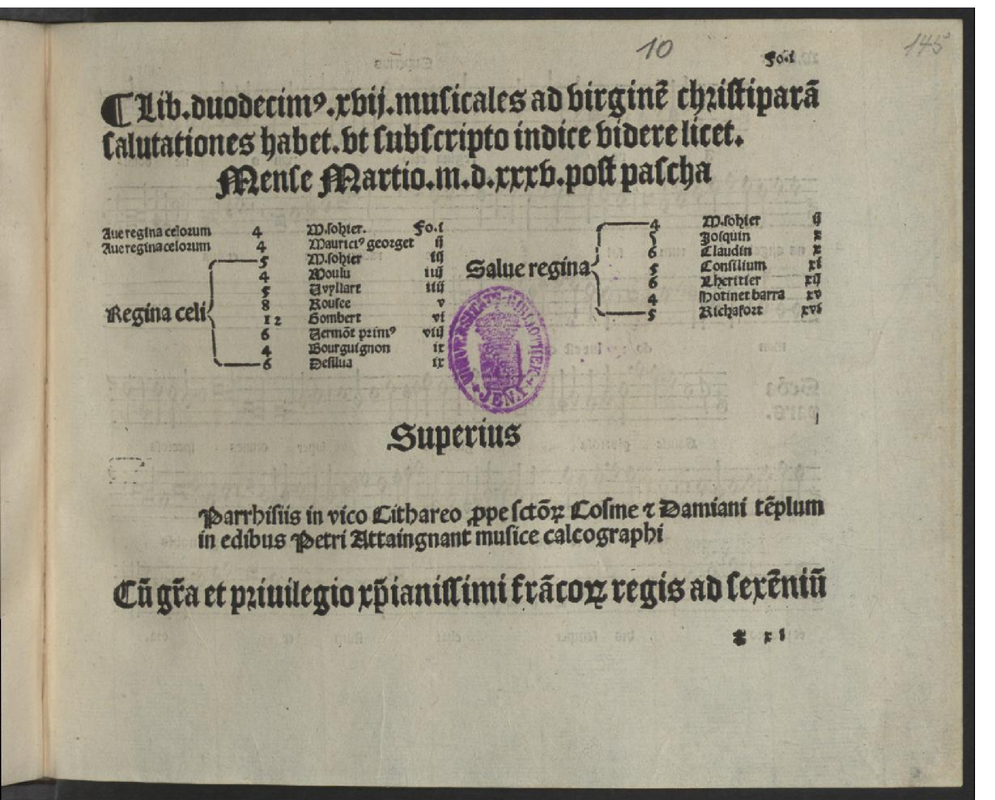 10
145
Fo.i
¶ Lib.duodecimꝰ.xvij.musicales ad virginē christiparā
salutationes habet.vt subscripto indice videre licet.
Mense Martio.m.d.xxxv.post pascha
Aue regina celorum 4 M.sohier. Fo.i
Aue regina celorum 4 Mauriciꝰ georget ij
Regina celi
5 M.sohier iij
4 Moulu iiij
5 Vvyllart iiij
8 Rousee v
12 Gombert vi
6 Vermōt primꝰ viij
4 Bourguignon ix
6 Desilua ix
Salue regina
4 M.sohier ij
5 Josquin x
6 Claudin x
5 Consilium xi
6 Lheritier xij
4 Hotinet barra xv
5 Richafort xvi
UNIVERSITÄTS-BIBLIOTHEK
JENA
Superius
Parrhisiis in vico Cithareo ꝓpe sctōꝝ Cosme ⁊ Damiani tēplum
in edibus Petri Attaingnant musice calcographi
Cū grā et priuilegio xp̄ianissimi frācoꝝ regis ad sexēniū
xi